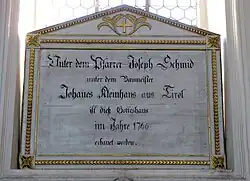 Unter dem Pfarrer Joseph Schmid
unter dem Baumeister
Johanes Kleinhans aus Tirol
ist dieß Gotteshaus
im Jahre 1766
erbauet worden.